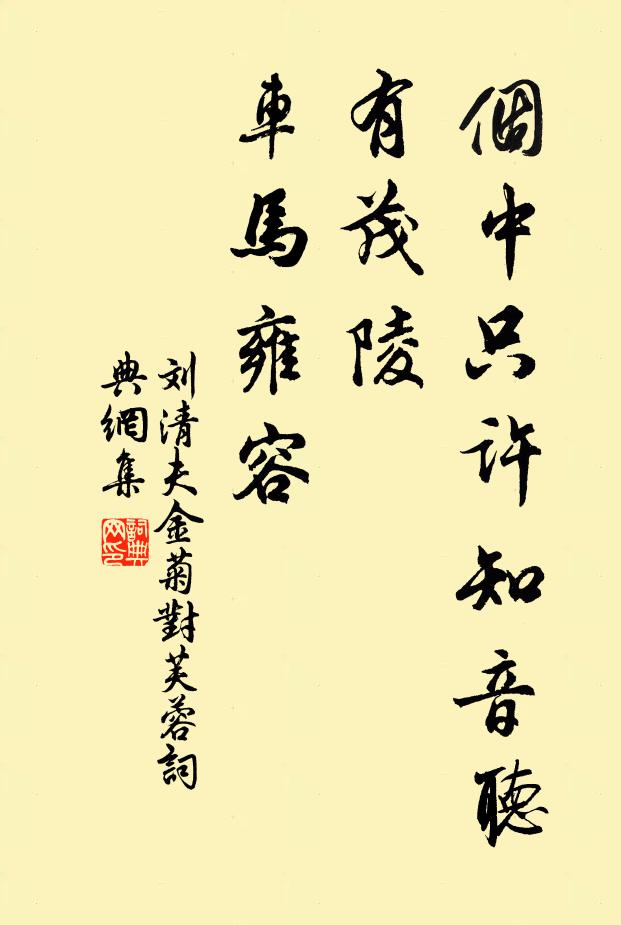 個中只許知音聽
有茂陵
車馬雍容
刘清夫金菊對芙蓉詞
典網集
詞典
网印